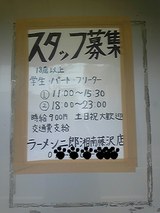 スタッフ募集
18歳以上
学生 パート フリーター
① 11:00~15:30
② 18:00~23:00
時給900円 土日祝大歓迎
交通費支給
ラーメン二郎湘南藤沢店